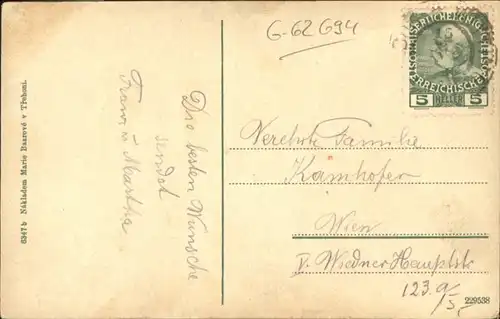 G-62694
KAISERLICHE KÖNIGLICHE
ÖSTERREICHISCHE POST
5 HELLER 5
6347 b Nákladem Marie Baarové v Třeboni.
Die besten Wünsche
sendet
Franz u Martha
Verehrte Familie
Kamhofer
Wien
V. Wiedner Hauptstr
123 a/5.
229538